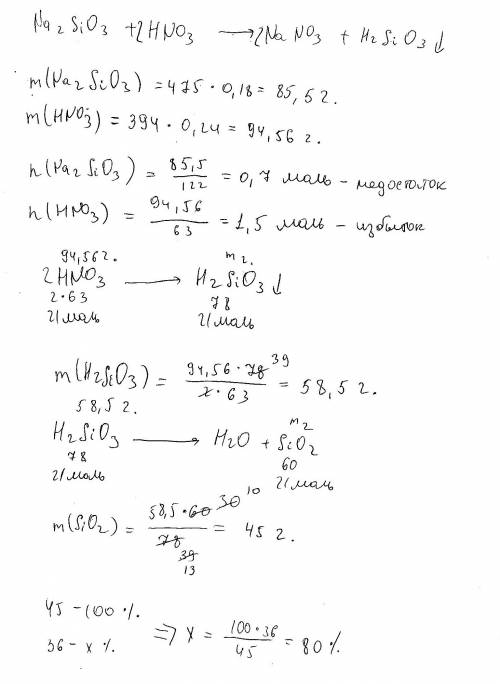 Na2SiO3 + 2HNO3 → 2NaNO3 + H2SiO3↓
m(Na2SiO3) = 475 · 0,18 = 85,5 г.
m(HNO3) = 394 · 0,24 = 94,56 г.
n(Na2SiO3) = 85,5/122 = 0,7 моль – недостаток
n(HNO3) = 94,56/63 = 1,5 моль – избыток
94,56 г. m г.
2HNO3 → H2SiO3↓
2·63 78
г/моль г/моль
m(H2SiO3) = 94,56 · 78 39 / 2 · 63 = 58,5 г.
58,5 г. m г
H2SiO3 → H2O + SiO2
78 60
г/моль г/моль
m(SiO2) = 58,5 · 60 30 10 / 78 39 13 = 45 г.
45 – 100 %.
36 – x %. => x = 100 · 36 / 45 = 80 %